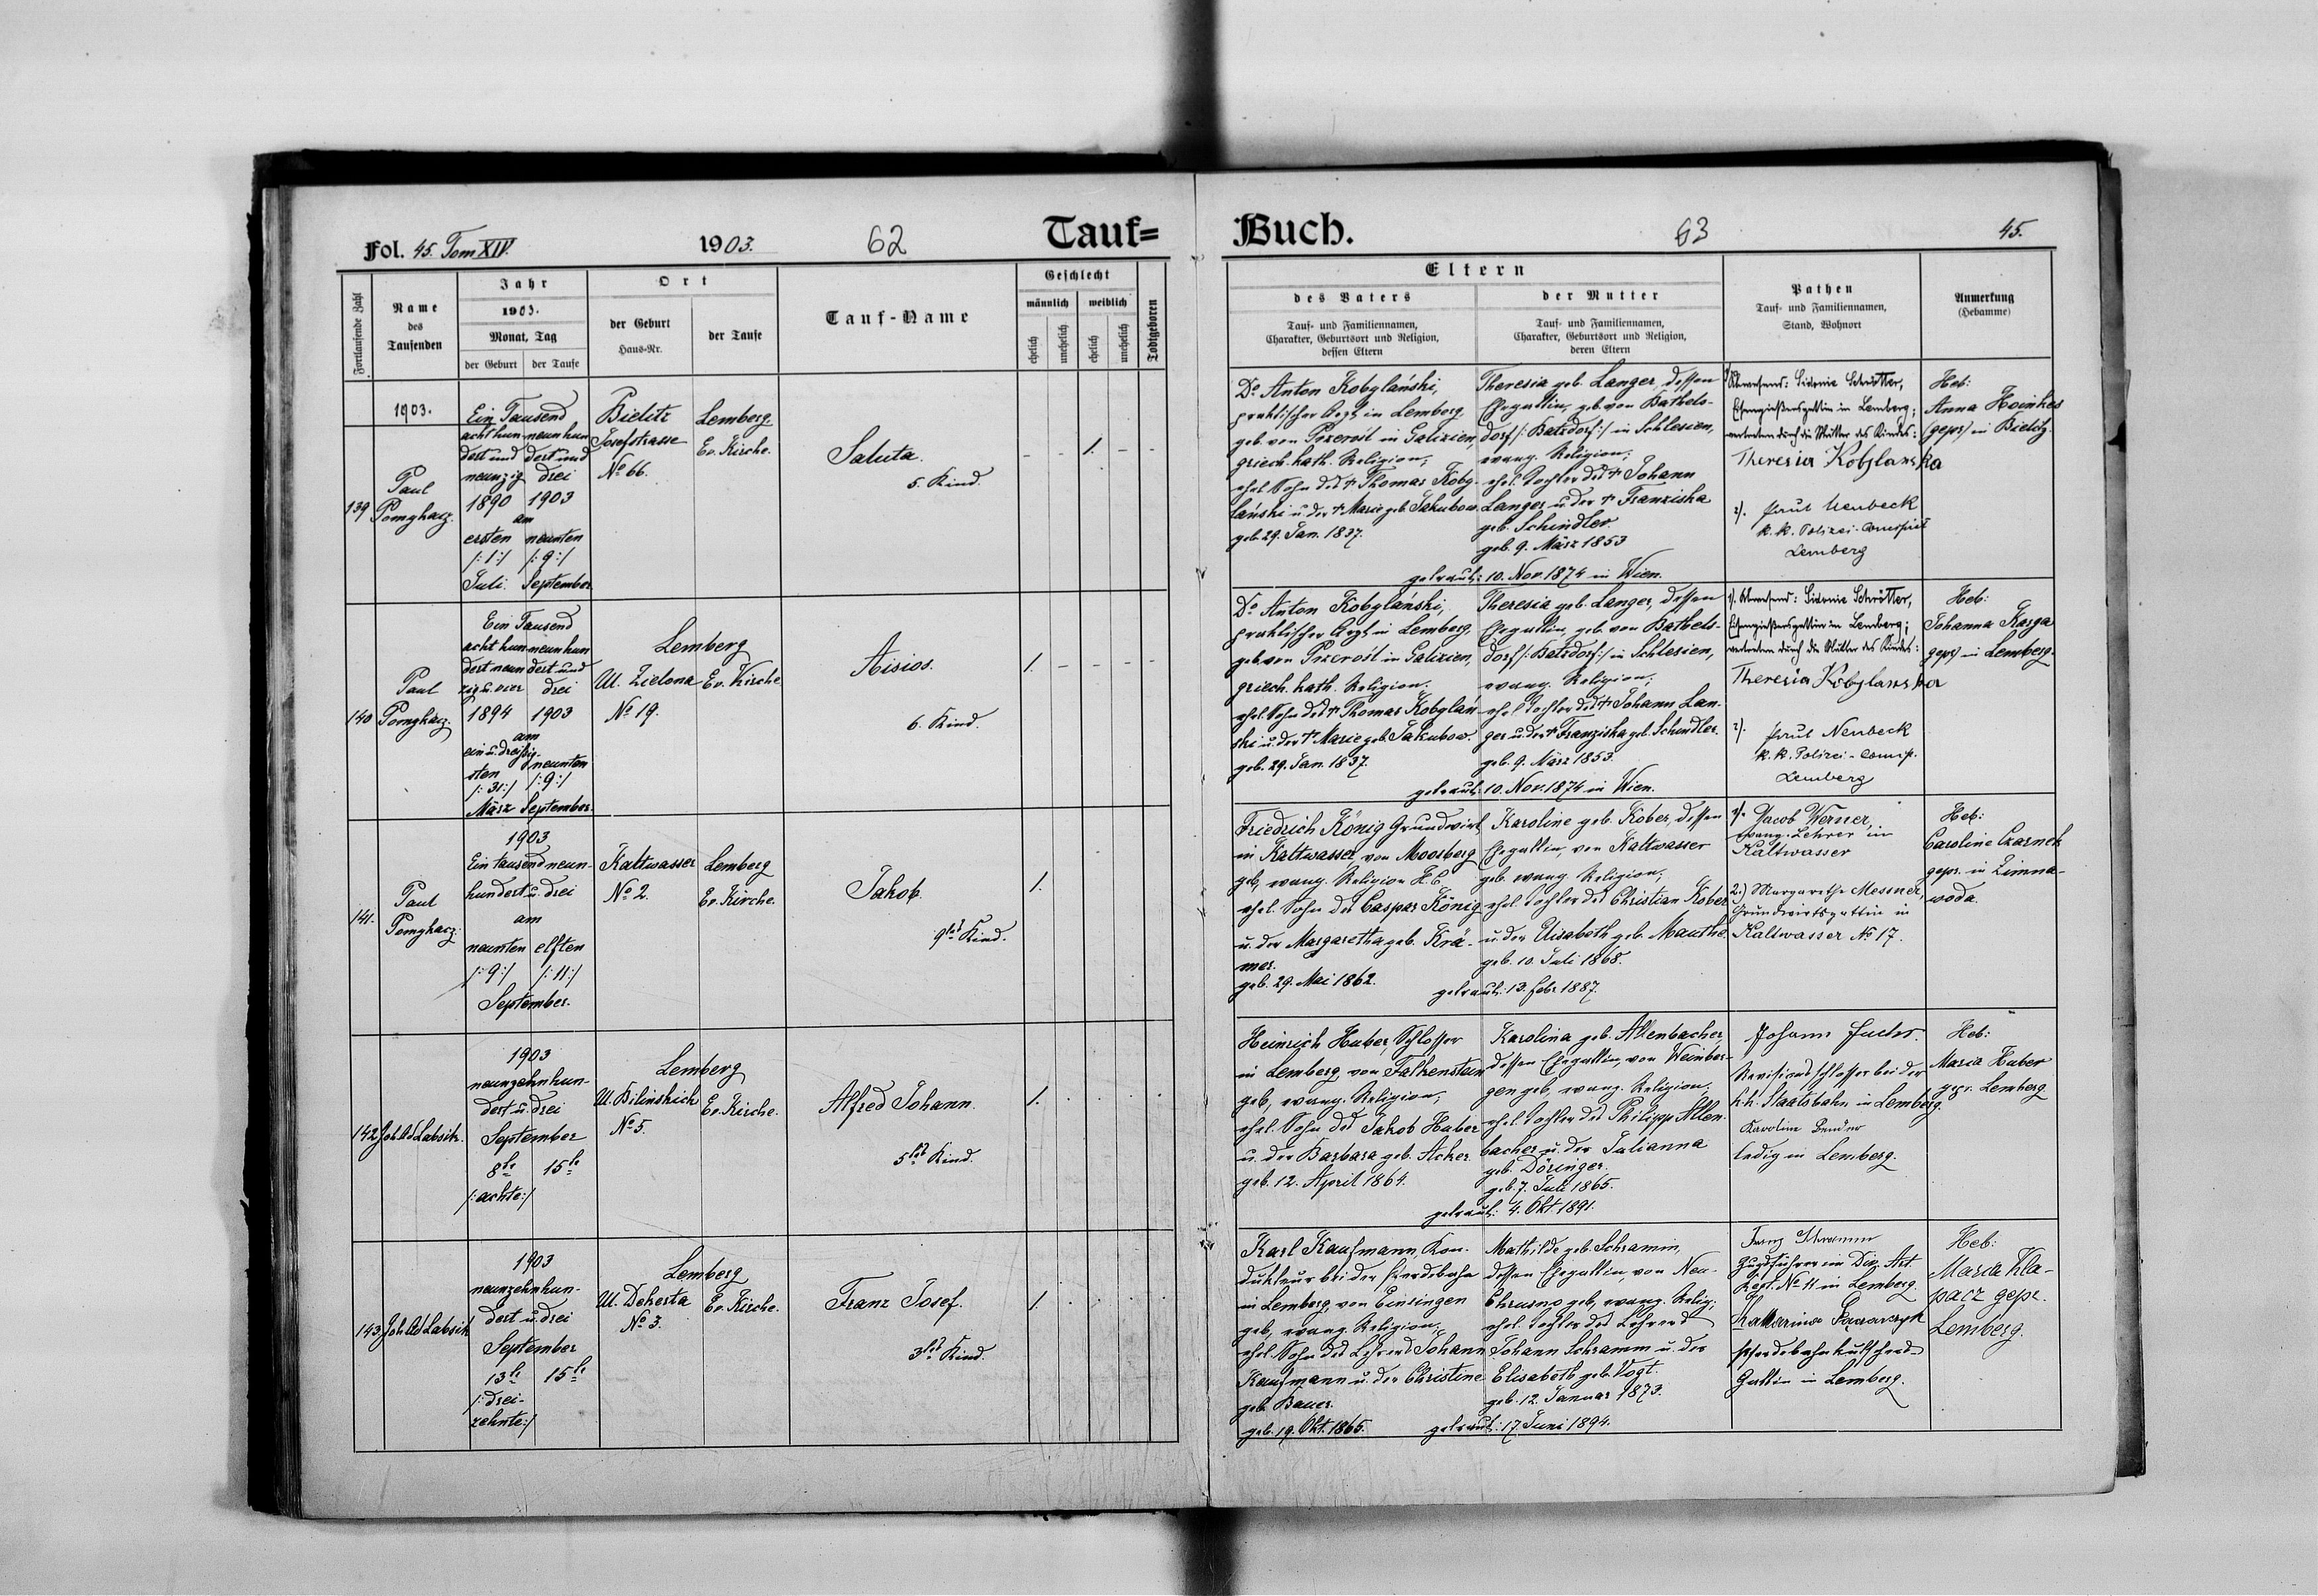 Fol. 45. Tom XIV.
1903.
62
Tauf=
Fortlaufende Zahl
Name
des
Taufenden
Jahr
1903.
Monat, Tag
der Geburt
der Taufe
Ort
der Geburt
Haus-Nr.
der Taufe
Tauf-Name
Geschlecht
männlich
weiblich
ehelich
unehelich
ehelich
unehelich
Todtgeboren
1903.
139
Paul
Pomykacz.
Ein Tausend
acht hun- neun hun
dert und dert und
neunzig drei
1890 1903
am
ersten neunten
/:1:/ /:9:/
Juli. September.
Bielitz
Josefstrasse
No 66.
Lemberg.
Ev. Kirche.
Saluta.
5. Kind.
– – 1. – –
140
Paul
Pomykacz.
Ein Tausend
acht hun- neun hun
dert neun dert und
zig u. vier drei
1894 1903
am
ein u. dreißig-
sten neunten
/:31:/ /:9:/
März September.
Lemberg
Ul. Zielona
No 19.
Ev. Kirche
Aisios.
6. Kind.
1. – – – –
141.
Paul
Pomykacz.
1903
Ein tausend neun-
hundert u. drei
am
neunten elften
/:9:/ /:11:/
September.
Kaltwasser
No 2.
Lemberg
Ev. Kirche.
Jakob.
9tes Kind.
1.
142
Joh. Ad Labsik.
1903
neunzehnhun-
dert u. drei
September
8te 15te
/:achte:/
Lemberg
Ul. Bilinskich
No 5.
Ev. Kirche.
Alfred Johann.
5tes Kind.
1.
143
Joh. Ad Labsik
1903
neunzehnhun-
dert u. drei
September
13te 15te
/:drei-
zehnte:/
Lemberg
Ul. Dekerta
No 3.
Ev. Kirche.
Franz Josef.
3tes Kind.
1.
Buch.
63
45.
Eltern
des Vaters
Tauf- und Familiennamen,
Charakter, Geburtsort und Religion,
dessen Eltern
der Mutter
Tauf- und Familiennamen,
Charakter, Geburtsort und Religion,
deren Eltern
Pathen
Tauf- und Familiennamen,
Stand, Wohnort
Anmerkung
(Hebamme)
Dr Anton Kobylański,
praktischer Arzt in Lemberg,
geb. von in Galizien,
griech. kath. Religion;
ehel. Sohn des † Thomas Koby-
lański u. der † Marie geb. Jakubow.
geb. 29. Jan. 1837.
Theresia geb. Langer, dessen
Ehegattin, geb. von Bathels-
dorf /:Batzdorf:/ in Schlesien,
evang. Religion;
ehel. Tochter des † Johann
Langer u. der † Franziska
geb. Schindler
geb. 9. März 1853
getraut: 10. Nov. 1874 in Wien.
Abwesend: Sidonie Schrötter,
in Lemberg;
vertreten durch die Mutter des Kindes:
Theresia Kobylanska
2). Paul Neubeck
k. k. Polizei-
Lemberg
Heb:
Anna Hoinkes
(gepr) in Bielitz.
Dr Anton Kobylański,
praktischer Arzt in Lemberg,
geb. von in Galizien,
griech. kath. Religion;
ehel. Sohn des † Thomas Kobylań-
ski u. der † Marie geb. Jakubow.
geb. 29. Jan. 1837.
Theresia geb. Langer, dessen
Ehegattin, geb. von Bathels-
dorf /:Batzdorf:/ in Schlesien,
evang. Religion;
ehel. Tochter des † Johann Lan-
ger u. der † Franziska geb. Schindler.
geb. 9. März 1853.
getraut: 10. Nov. 1874 in Wien.
1). Abwesend: Sidonie Schrötter,
in Lemberg;
vertreten durch die Mutter des Kindes:
Theresia Kobylanska
2). Paul Neubeck
k. k. Polizei-
Lemberg
Heb:
Johanna Karga
gepr) in Lemberg.
Friedrich König Grundwirt
in Kaltwasser, von Moosberg
geb, evang. Religion H. C.
ehel. Sohn des Caspar König
u. der Margaretha geb. Krä-
mer.
geb. 29. Mai 1862.
Karoline geb. Kober, dessen
Ehegattin, von Kaltwasser
geb. evang. Religion;
ehel. Tochter des Christian Kober
u. der Elisabeth geb. Mauthe.
geb. 10. Juli 1868.
getraut: 13. Febr 1887.
1). Jacob Werner,
evang. Lehrer in
Kaltwasser
2.) Margarethe Messner,
Grundwirtsgattin in
Kaltwasser No 17.
Heb:
Caroline Czarnek
gepr. in Zimna-
woda.
Heinrich Huber, Schlosser
in Lemberg von Falkenstein
geb, evang. Religion;
ehel. Sohn des Jakob Huber
u. der Barbara geb. Acker.
geb. 12. April 1864.
Karolina geb. Allenbacher
dessen Ehegattin, von Weinber-
gen geb, evang. Religion;
ehel. Tochter des Philipp Allen-
bacher u. der Julianna
geb. Döringer.
geb. 7. Juli 1865.
getraut: 4. Okt 1891.
Johann Fuchs.
Revisionsschlosser bei der
k. k. Staatsbahn in Lemberg.
Karoline Bender
ledig in Lemberg.
Heb:
Maria Huber
gepr. Lemberg
Karl Kaufmann, Kon-
dukteur bei der Pferdebahn
in Lemberg, von Einsingen
geb, evang. Religion;
ehel. Sohn des Lehrers Johann
Kaufmann u. der Christine
geb. Bauer.
geb. 19. Okt. 1865.
Mathilde geb. Schramm,
dessen Ehegattin, von Neu-
Chrusno geb, evang. Relig;
ehel. Tochter des Lehrers
Johann Schramm u. der
Elisabeth geb. Vogt.
geb. 12. Januar 1873.
getraut: 17. Juni 1894.
Franz Schramm
Zugsführer im Div. Art.
Regt. No 11 in Lemberg.
Katharina
Pferdebahnkutschers-
Gattin in Lemberg.
Heb:
Maria Kla-
pacz gepr.
Lemberg.